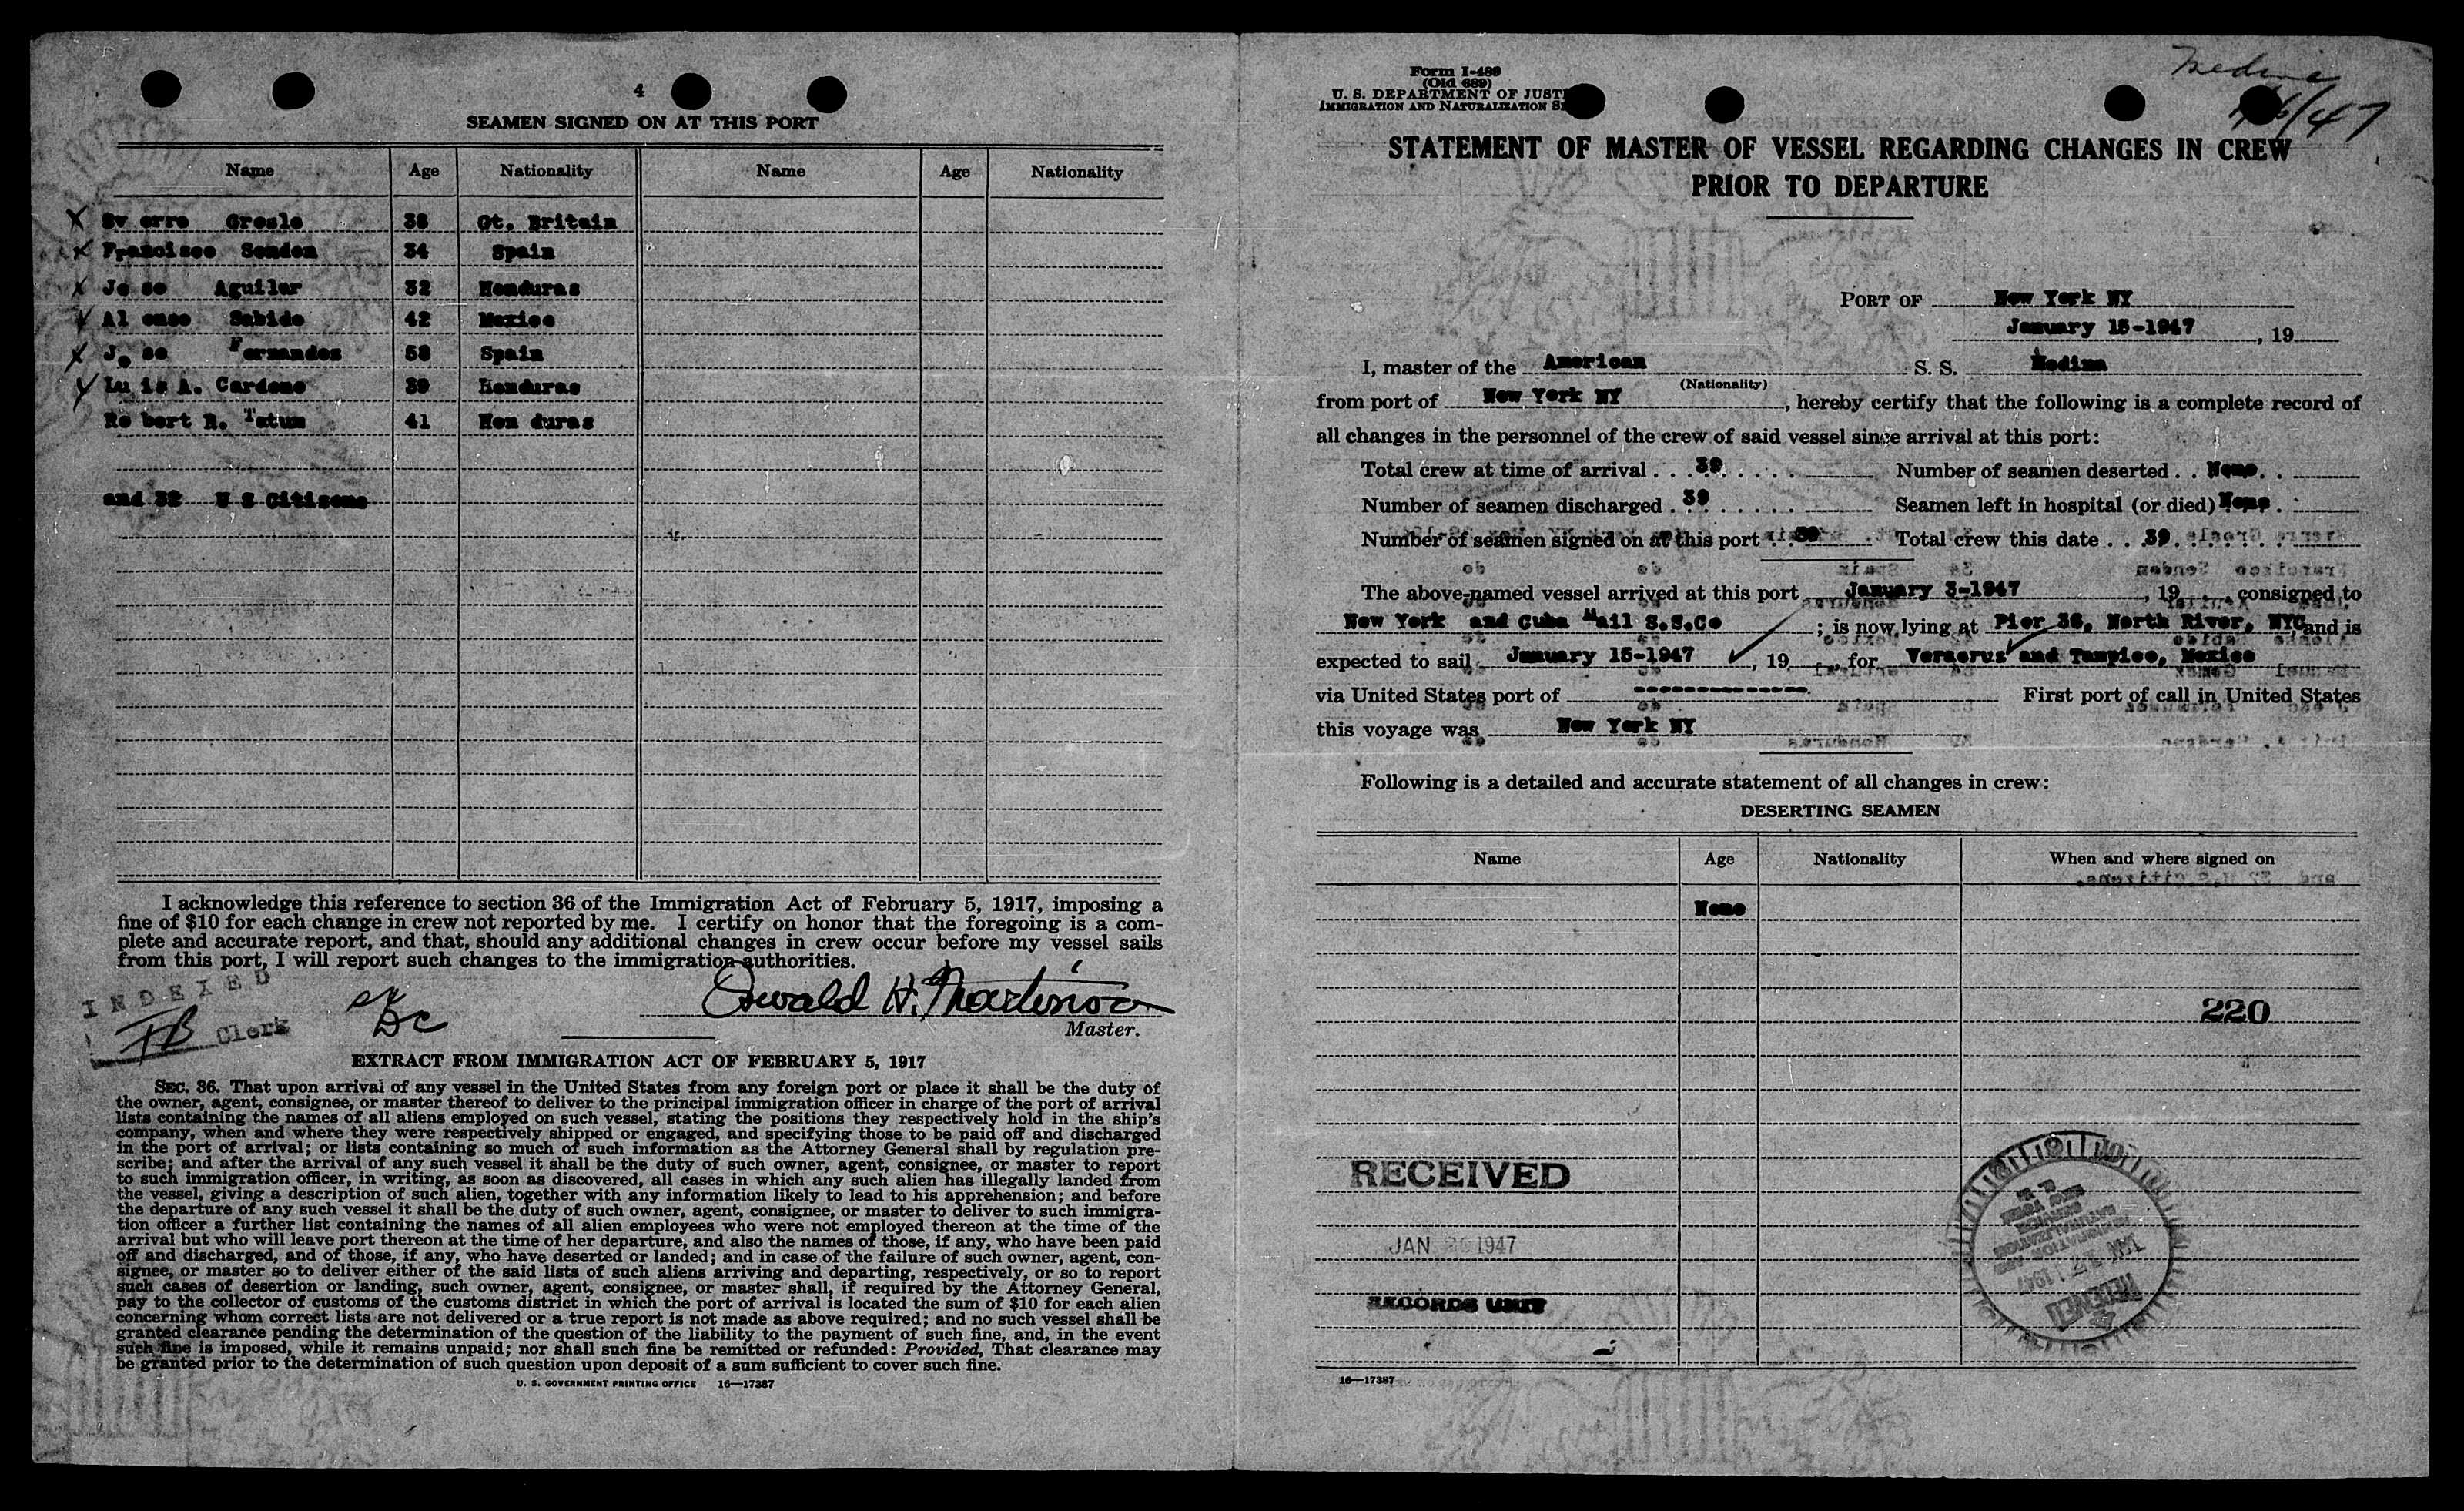 4
SEAMEN SIGNED ON AT THIS PORT
Name Age Nationality Name Age Nationality
Sv erre Grosle 38 Gt. Britain
Francisco Senden 34 Spain
Jo se Aguilar 32 Honduras
Al onso Sabido 42 Mexico
Jo se Fernandez 58 Spain
Lu is A. Cardono 39 Honduras
Ro bert R. Tatum 41 Hon duras
and 32 U S Citizens
I acknowledge this reference to section 36 of the Immigration Act of February 5, 1917, imposing a
fine of $10 for each change in crew not reported by me. I certify on honor that the foregoing is a com-
plete and accurate report, and that, should any additional changes in crew occur before my vessel sails
from this port, I will report such changes to the immigration authorities.
INDEXED
Clerk
Oswald H. Martinson
Master.
EXTRACT FROM IMMIGRATION ACT OF FEBRUARY 5, 1917
SEC. 36. That upon arrival of any vessel in the United States from any foreign port or place it shall be the duty of
the owner, agent, consignee, or master thereof to deliver to the principal immigration officer in charge of the port of arrival
lists containing the names of all aliens employed on such vessel, stating the positions they respectively hold in the ship's
company, when and where they were respectively shipped or engaged, and specifying those to be paid off and discharged
in the port of arrival; or lists containing so much of such information as the Attorney General shall by regulation pre-
scribe; and after the arrival of any such vessel it shall be the duty of such owner, agent, consignee, or master to report
to such immigration officer, in writing, as soon as discovered, all cases in which any such alien has illegally landed from
the vessel, giving a description of such alien, together with any information likely to lead to his apprehension; and before
the departure of any such vessel it shall be the duty of such owner, agent, consignee, or master to deliver to such immigra-
tion officer a further list containing the names of all alien employees who were not employed thereon at the time of the
arrival but who will leave port thereon at the time of her departure, and also the names of those, if any, who have been paid
off and discharged, and of those, if any, who have deserted or landed; and in case of the failure of such owner, agent, con-
signee, or master so to deliver either of the said lists of such aliens arriving and departing, respectively, or so to report
such cases of desertion or landing, such owner, agent, consignee, or master shall, if required by the Attorney General,
pay to the collector of customs of the customs district in which the port of arrival is located the sum of $10 for each alien
concerning whom correct lists are not delivered or a true report is not made as above required; and no such vessel shall be
granted clearance pending the determination of the question of the liability to the payment of such fine, and, in the event
such fine is imposed, while it remains unpaid; nor shall such fine be remitted or refunded: Provided, That clearance may
be granted prior to the determination of such question upon deposit of a sum sufficient to cover such fine.
U. S. GOVERNMENT PRINTING OFFICE 16—17387
Form I-489
(Old 689)
U. S. DEPARTMENT OF JUST
IMMIGRATION AND NATURALIZATION S
Medina
/47
STATEMENT OF MASTER OF VESSEL REGARDING CHANGES IN CREW
PRIOR TO DEPARTURE
PORT OF New York NY
January 15-1947, 19
I, master of the American S. S. Medina
(Nationality)
from port of New York NY, hereby certify that the following is a complete record of
all changes in the personnel of the crew of said vessel since arrival at this port:
Total crew at time of arrival . . . 39 Number of seamen deserted . . None
Number of seamen discharged . 39 Seamen left in hospital (or died) None
Number of seamen signed on at this port . . 39 Total crew this date . . . 39
The above-named vessel arrived at this port January 3-1947, 19, consigned to
New York and Cuba Mail S.S.Co; is now lying at Pier 36, North River, NYC and is
expected to sail January 15-1947, 19, for Veracruz and Tampico, Mexico
via United States port of ------------- First port of call in United States
this voyage was New York NY
Following is a detailed and accurate statement of all changes in crew:
DESERTING SEAMEN
Name Age Nationality When and where signed on
None
220
RECEIVED
JAN 26 1947
RECORDS UNIT
16—17387